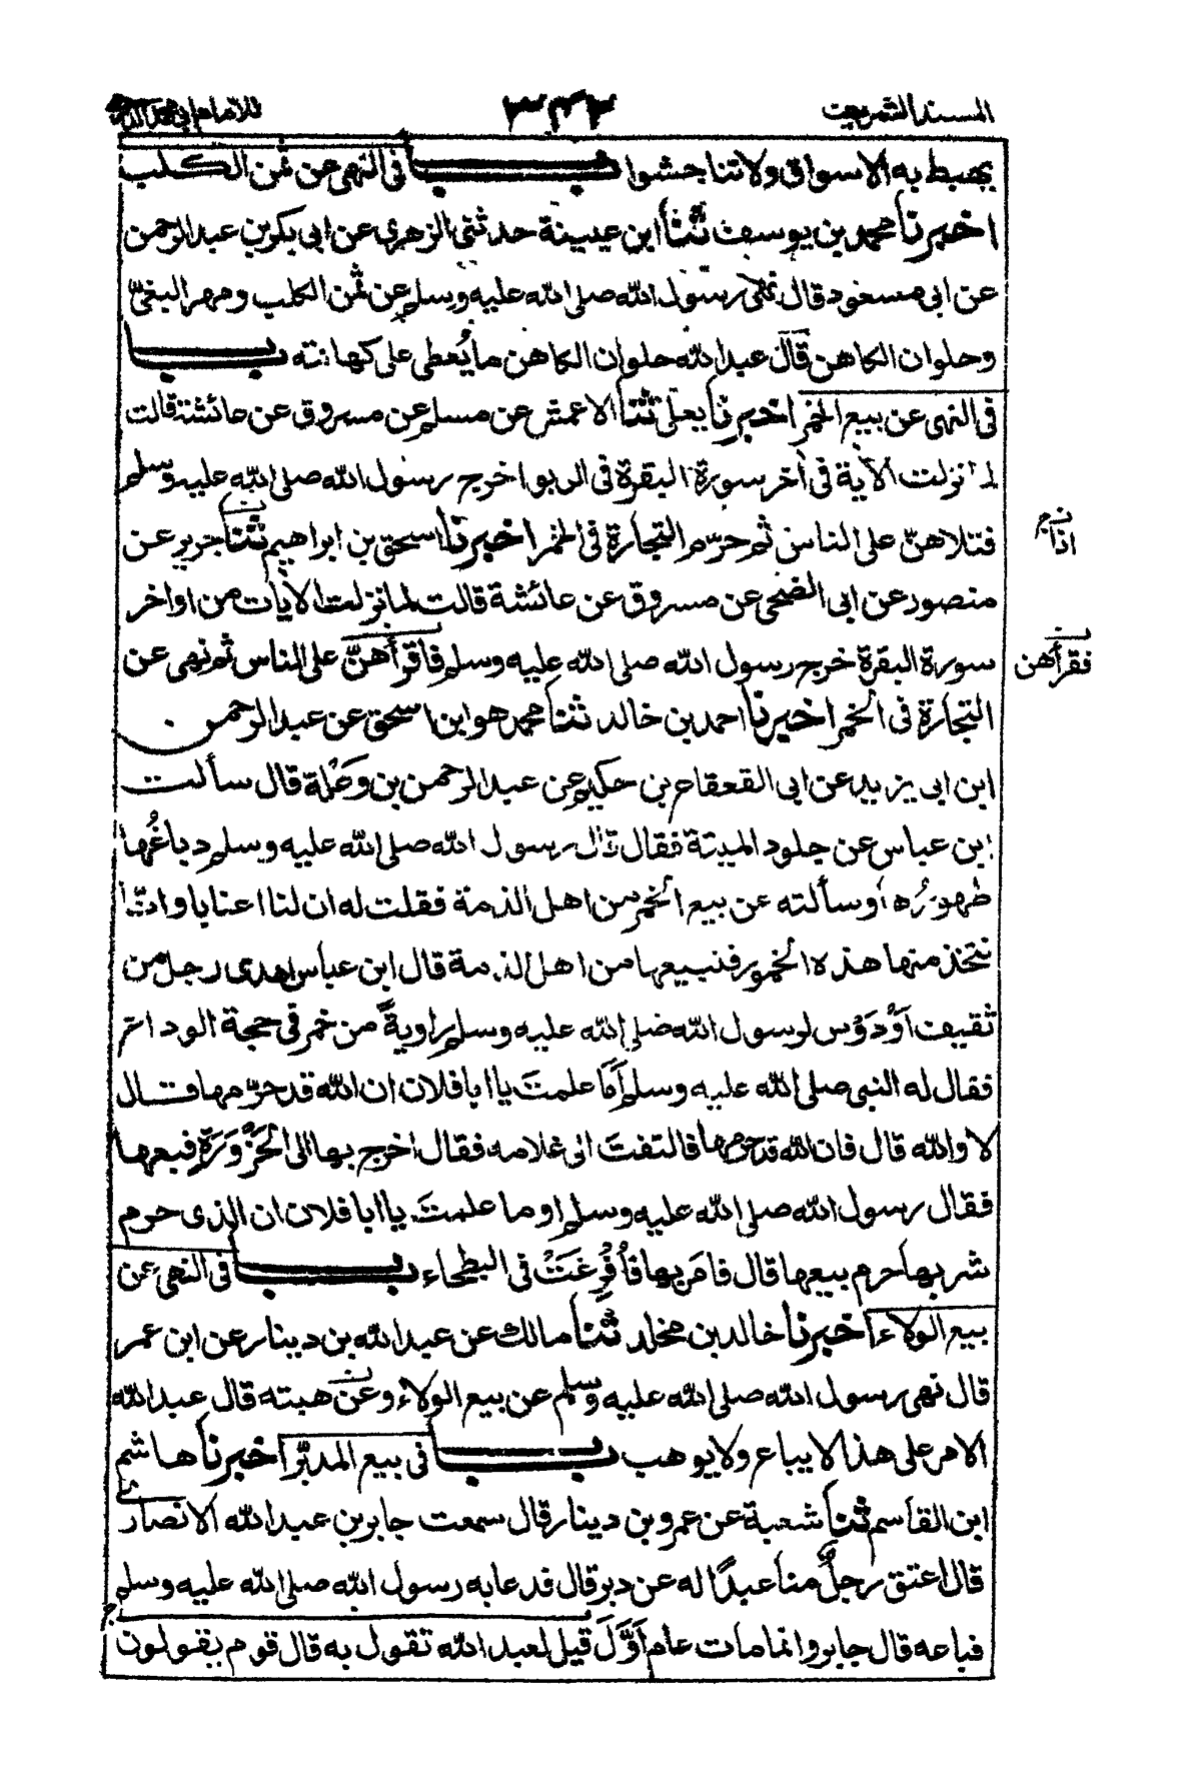 المسند الشريف ٣٤٣ للامام ابى محمد الدارمى
يهبط به الاسواق ولا تناجشوا باب فى النهى عن ثمن الكلب
اخبرنا محمد بن يوسف ثنا ابن عيينة حدثنى الزهرى عن ابى بكر بن عبد الرحمن
عن ابى مسعود قال نهى رسول الله صلى الله عليه وسلم عن ثمن الكلب ومهر البغىّ
وحلوان الكاهن قال عبد الله حلوان الكاهن ما يُعطى على كهانته باب
فى النهى عن بيع الخمر اخبرنا يعلى ثنا الاعمش عن مسلم عن مسروق عن عائشة قالت
لما نزلت الآية فى آخر سورة البقرة فى الربوا خرج رسول الله صلى الله عليه وسلم
فتلاهنّ على الناس ثم حرّم التجارة فى الخمر اخبرنا اسحق بن ابراهيم ثنا جرير عن
منصور عن ابى الضحى عن مسروق عن عائشة قالت لما نزلت الآيات من اواخر
سورة البقرة خرج رسول الله صلى الله عليه وسلم فاقرأهنّ على الناس ثم نهى عن
فقرأهن
التجارة فى الخمر اخبرنا احمد بن خالد ثنا محمد هو ابن اسحق عن عبد الرحمن
ابن ابى يزيد عن ابى القعقاع بن حكيم عن عبد الرحمن بن وَعْلة قال سألت
ابن عباس عن جلود الميتة فقال قال رسول الله صلى الله عليه وسلم دباغُها
طهورُها وسألته عن بيع الخمر من اهل الذمة فقلت له ان لنا اعنابا وانّا
نتخذ منها هذه الخمور فنبيعها من اهل الذمة قال ابن عباس اهدى رجل من
ثقيف اَوْ دَوْس لرسول الله صلى الله عليه وسلم راويةً من خمر فى حجة الوداع
فقال له النبى صلى الله عليه وسلم اَمَا علمتَ يا ابا فلان ان الله قد حرّمها قال
لا والله قال فان الله قد حرمها فالتفتَ الى غلامه فقال اخرج بها الى الحَزْوَرَة فبعها
فقال رسول الله صلى الله عليه وسلم او ما علمتَ يا ابا فلان ان الذى حرم
شربها حرم بيعها قال فامَر بها فاُفْرِغَتْ فى البطحاء باب فى النهى عن
بيع الولاء اخبرنا خالد بن مخلد ثنا مالك عن عبد الله بن دينار عن ابن عمر
قال نهى رسول الله صلى الله عليه وسلم عن بيع الولاء وعن هبته قال عبد الله
الامر على هذا لا يباع ولا يوهب باب فى بيع المدبّر اخبرنا هاشم
ابن القاسم ثنا شعبة عن عمرو بن دينار قال سمعت جابر بن عبد الله الانصارى
قال اعتق رجلٌ منا عبدًا له عن دبر قال فدعا به رسول الله صلى الله عليه وسلم
فباعه قال جابر وانما مات عام اَوَّلَ قيل لعبد الله تقول به قال قوم يقولون